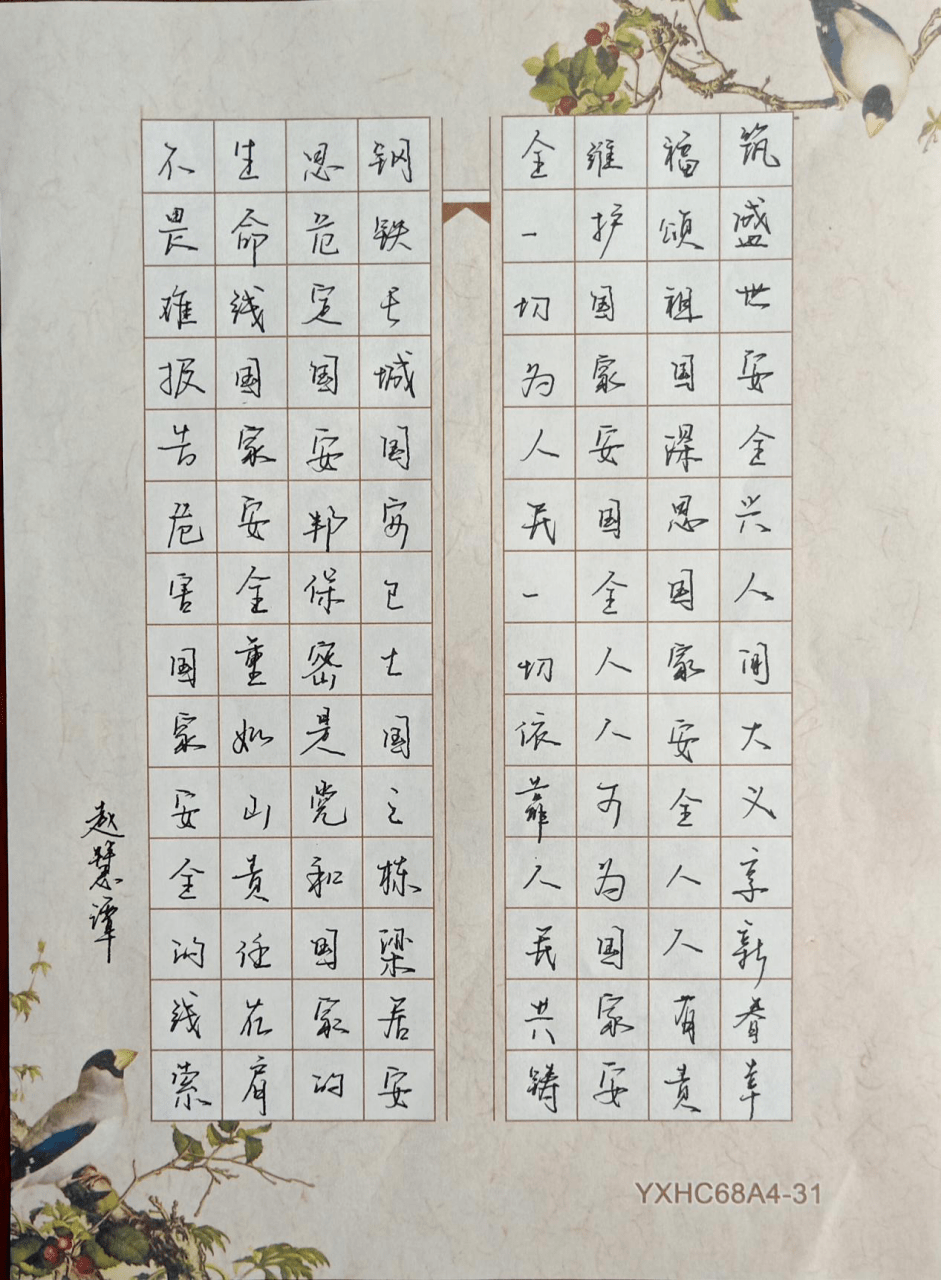 筑盛世安全兴人间大义享新春幸
福颂祖国深恩国家安全人人有责
维护国家安国全人人可为国家安
全一切为人民一切依靠人民共铸
钢铁长城国安卫士国之栋梁居安
思危定国安邦保密是党和国家的
生命线国家安全重如山责任在肩
不畏难报告危害国家安全的线索
赵慧谭
YXHC68A4-31